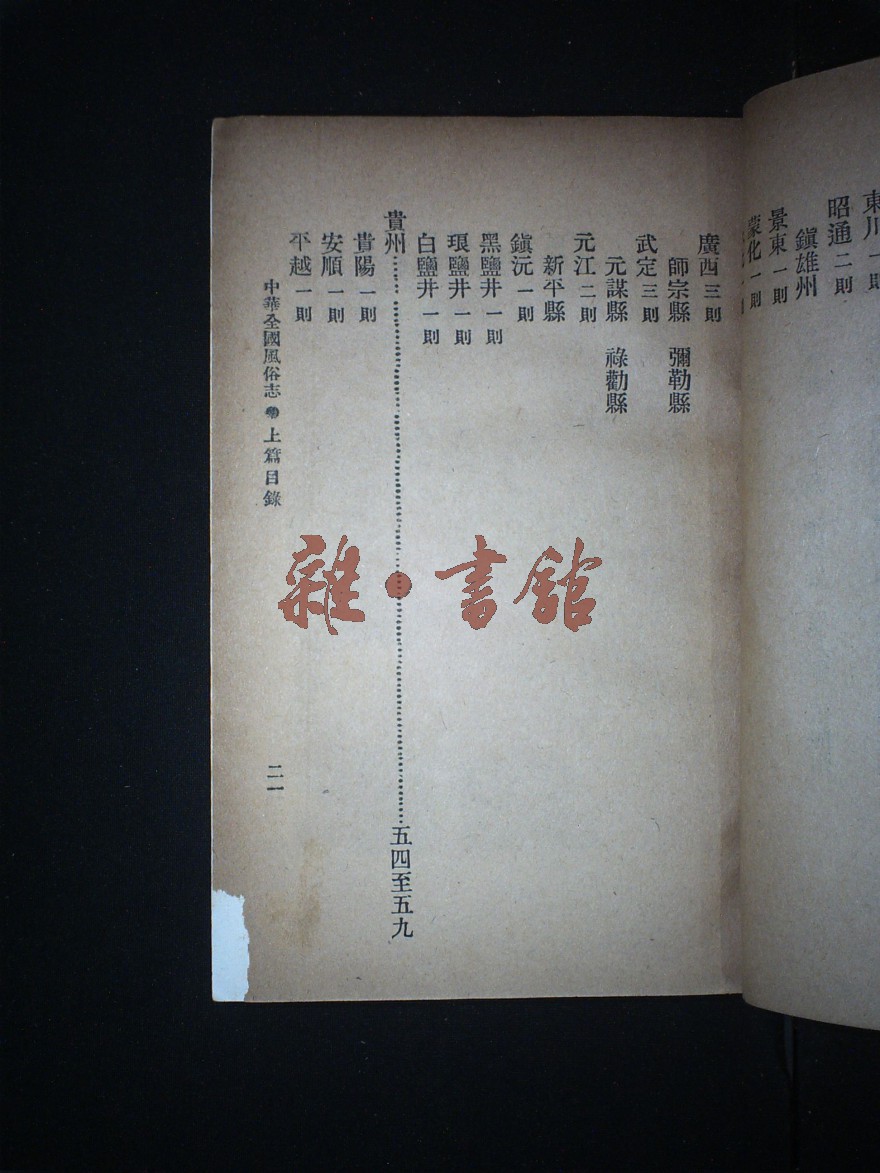 東川 一則
昭通 二則
鎮雄州
景東 一則
蒙化 一則
廣西 三則
師宗縣 彌勒縣
武定 三則
元謀縣 祿勸縣
元江 二則
新平縣
鎮沅 一則
黑鹽井 一則
琅鹽井 一則
白鹽井 一則
貴州……五四至五九
貴陽 一則
安順 一則
平越 一則
中華全國風俗志 卷上篇目錄
二一
雜·書館